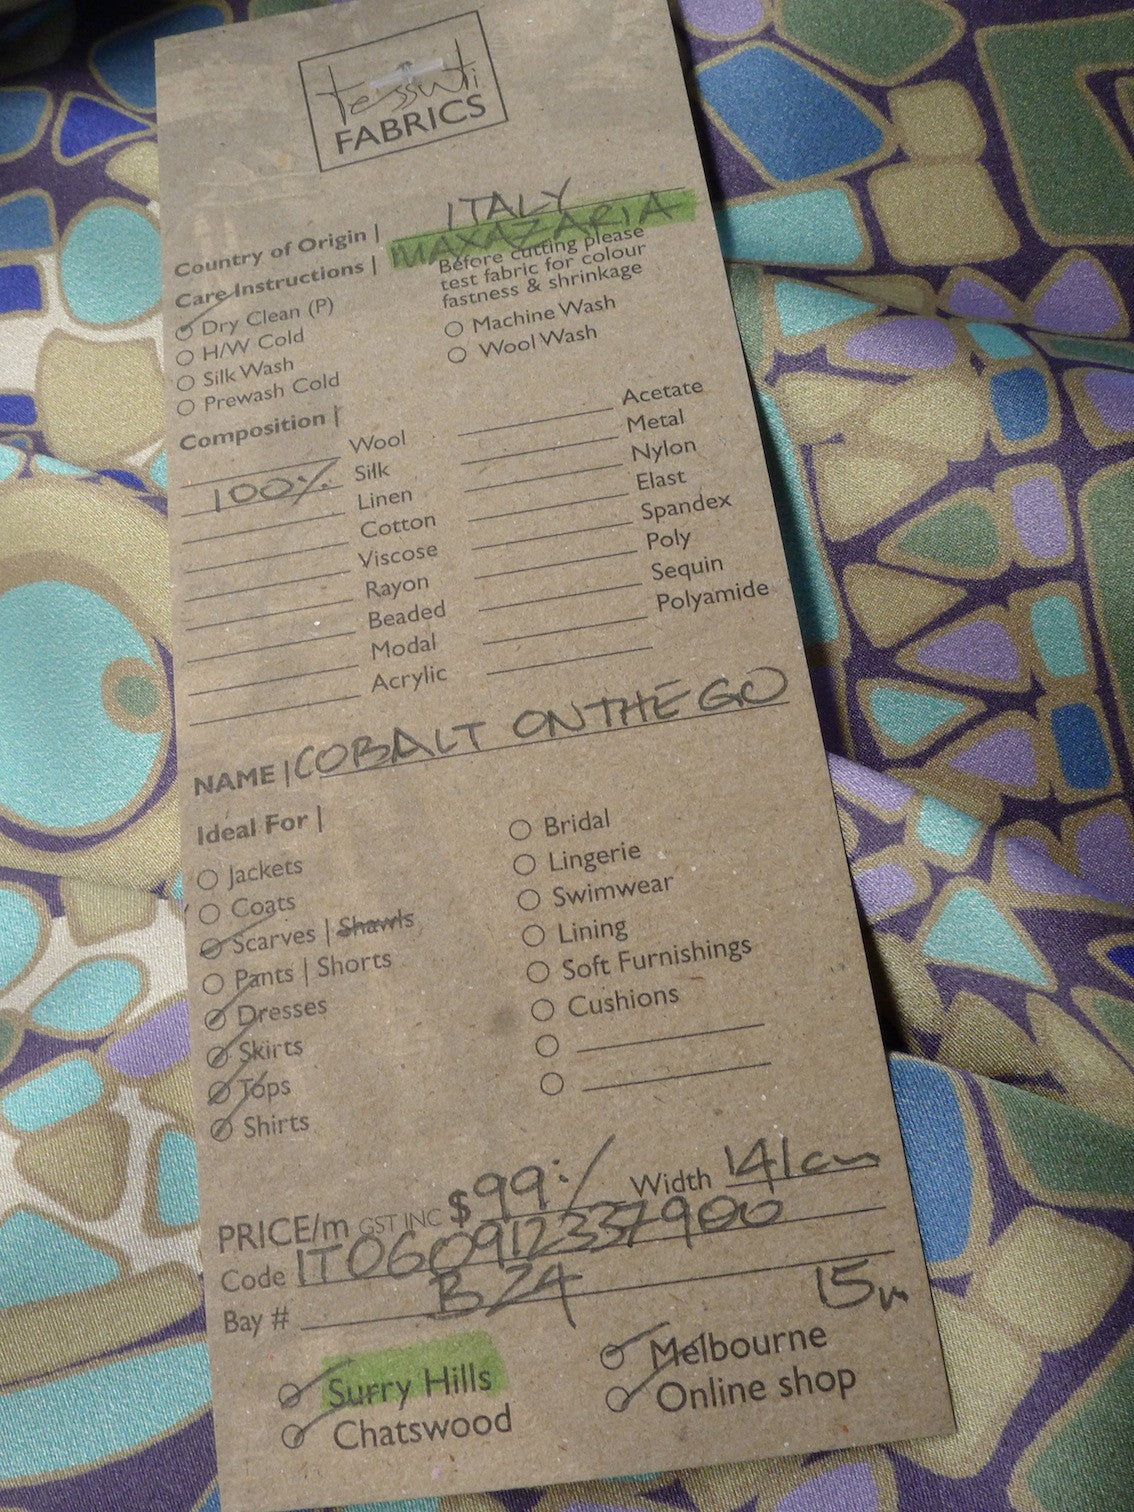 tessuti
FABRICS
Country of Origin | ITALY
MAXAZARIA
Care Instructions |
Before cutting please
test fabric for colour
fastness & shrinkage
Dry Clean (P)
H/W Cold
Silk Wash
Prewash Cold
Machine Wash
Wool Wash
Composition |
Wool
100% Silk
Linen
Cotton
Viscose
Rayon
Beaded
Modal
Acrylic
Acetate
Metal
Nylon
Elast
Spandex
Poly
Sequin
Polyamide
NAME | COBALT ON THE GO
Ideal For |
Jackets
Coats
Scarves | Shawls
Pants | Shorts
Dresses
Skirts
Tops
Shirts
Bridal
Lingerie
Swimwear
Lining
Soft Furnishings
Cushions
PRICE/m GST INC $99 Width 141cm
Code IT060912337900
Bay # B24 15m
Surry Hills
Chatswood
Melbourne
Online shop